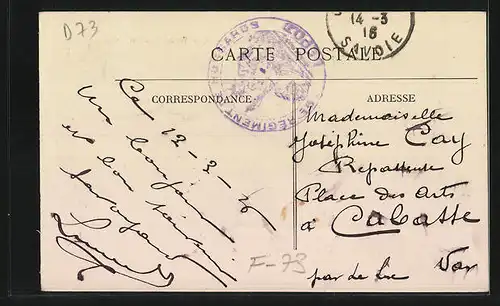 D73
14-3
16
SAVOIE
CARTE POSTALE
CORRESPONDANCE
ADRESSE
RÉGIMENT
Ce 12-3-16
un bonjour
et bon
Mademoiselle
Joséphine Cay
Repasseuse
Place des Arts
à Cabasse
par de Luc Var
F-73